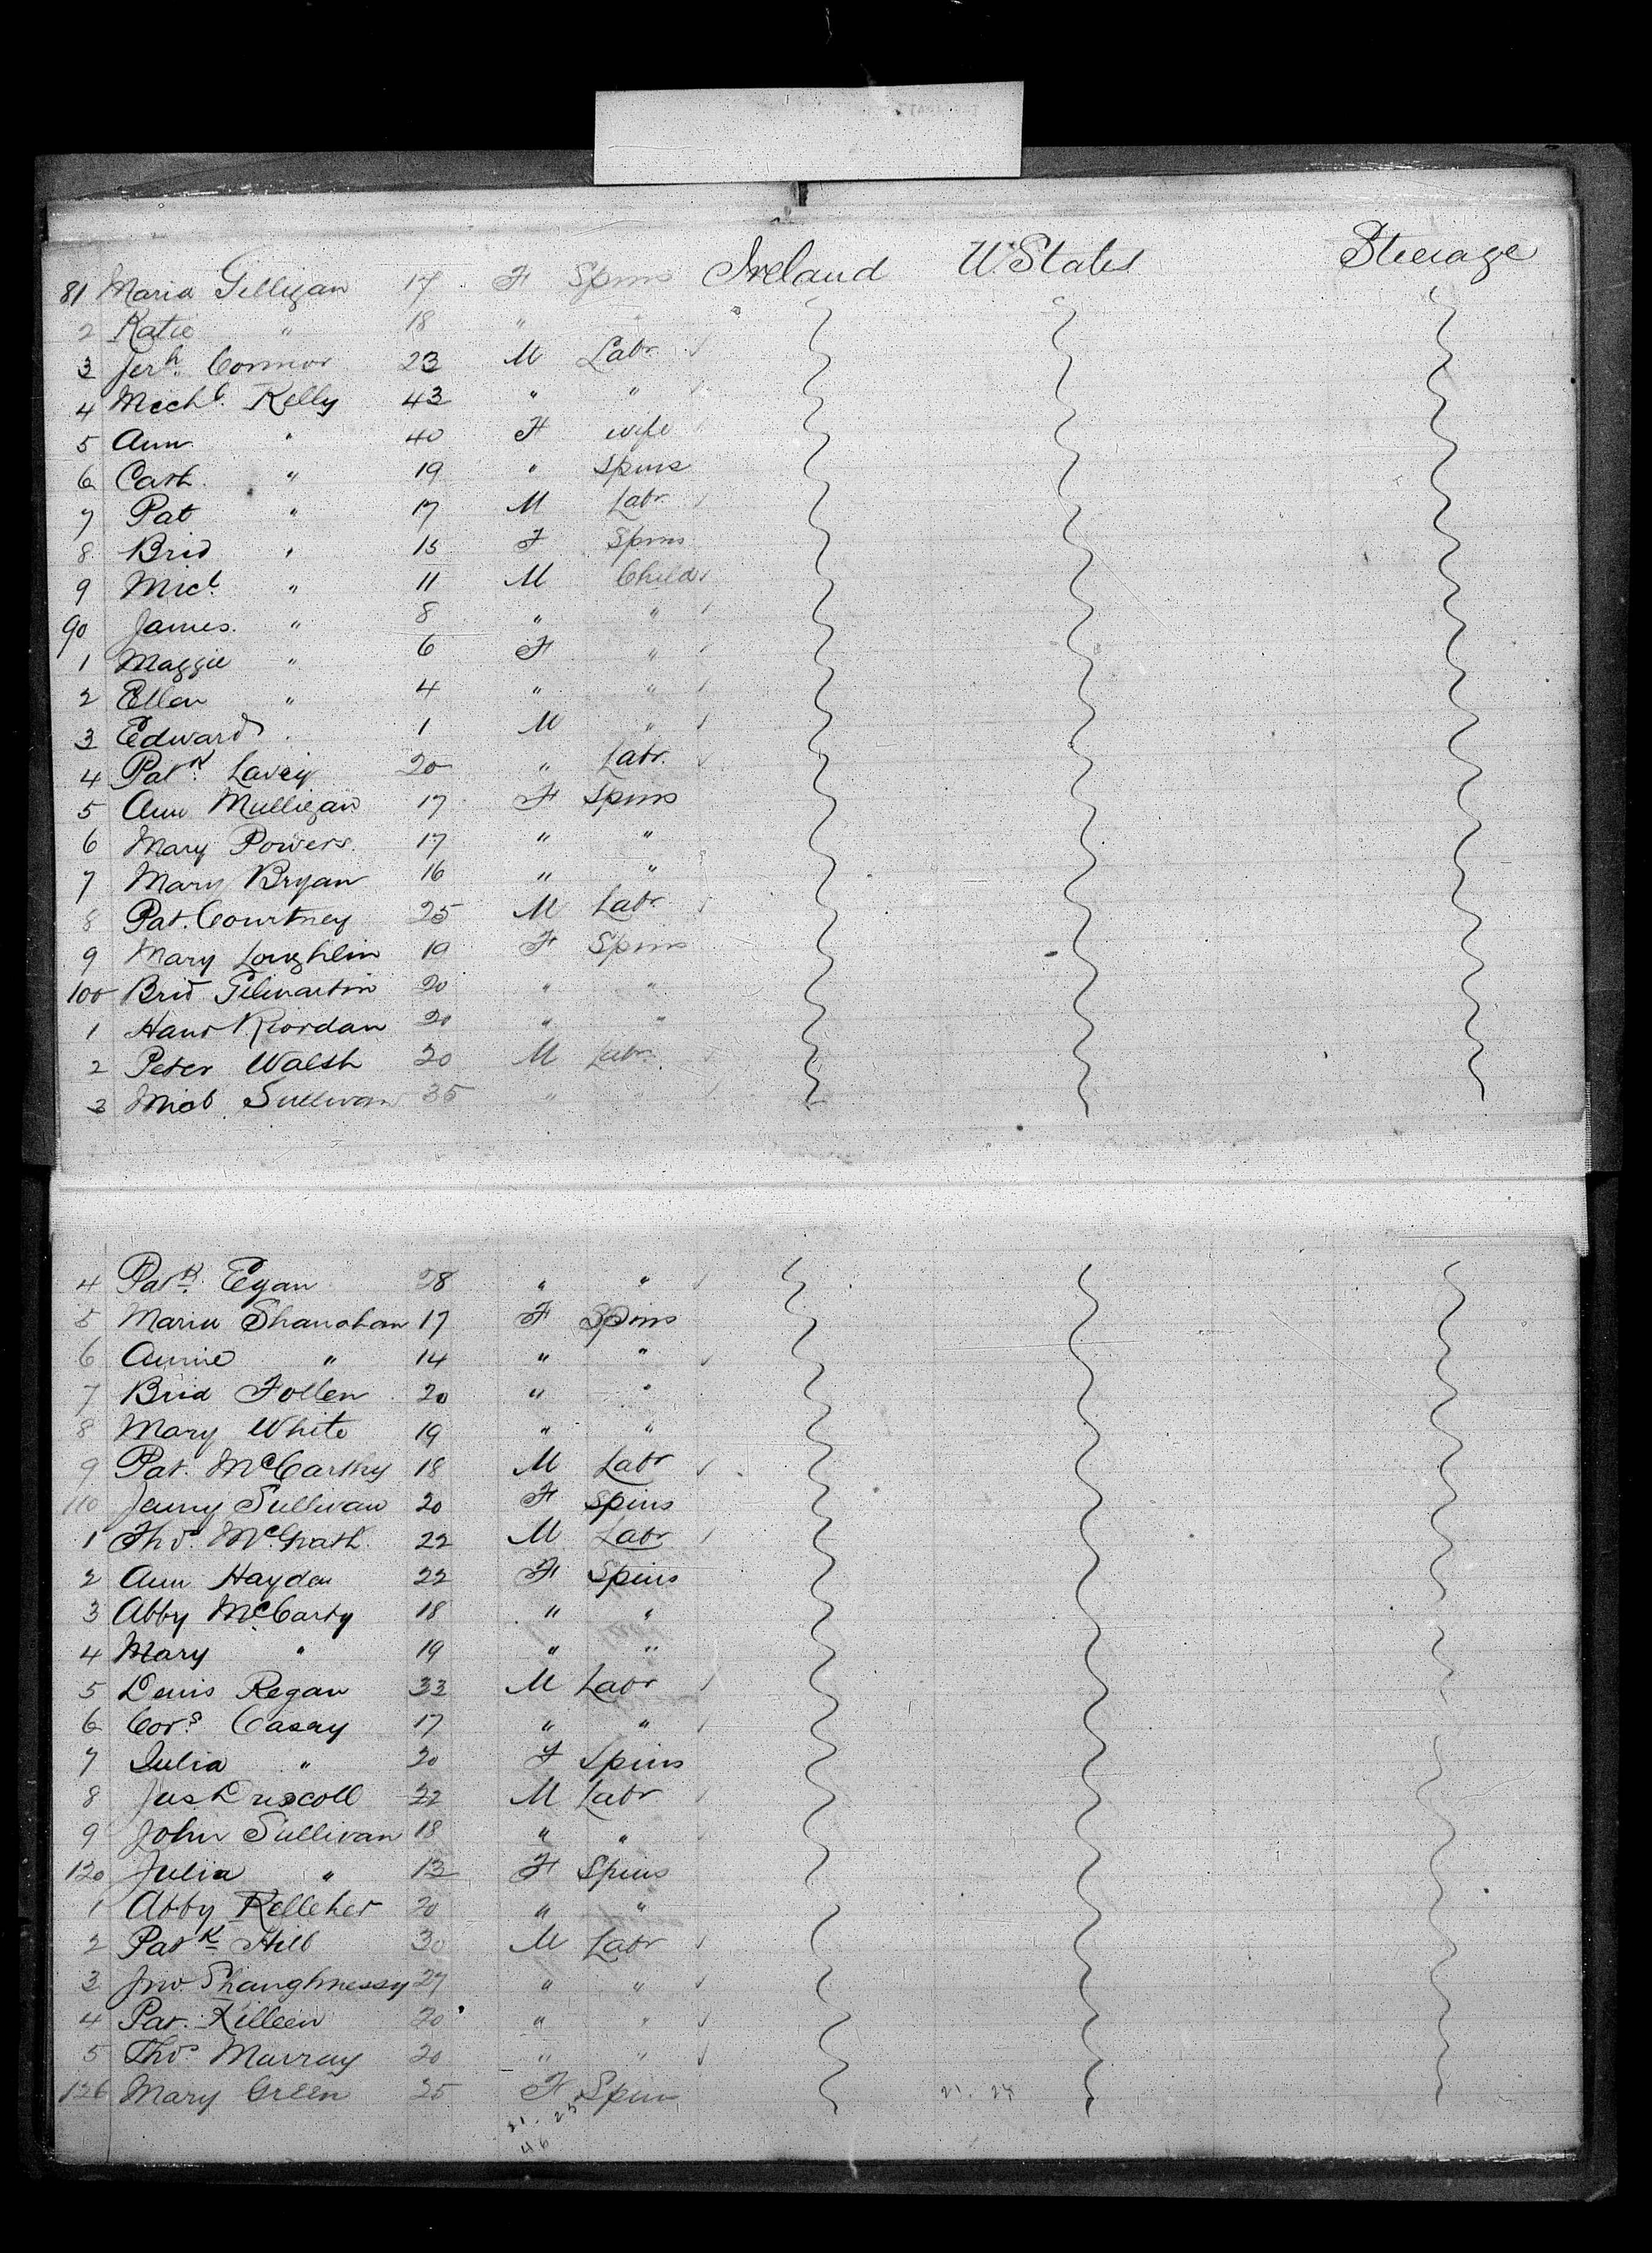 Ireland U. States Steerage
81 Maria Gilligan 17 F Spins
2 Katie " 18 " "
3 Jerh. Connor 23 M Labr
4 Michl. Kelly 43 " "
5 Ann " 40 F wife
6 Cath. " 19 " Spins
7 Pat " 17 M Labr
8 Brid " 15 F Spins
9 Micl. " 11 M Child
90 James. " 8 " "
1 Maggie " 6 F "
2 Ellen " 4 " "
3 Edward " 1 M "
4 Patk. Lavey 20 " Labr.
5 Ann Mulligan 17 F Spins
6 Mary Powers. 17 " "
7 Mary Bryan 16 " "
8 Pat. Courtney 25 M Labr
9 Mary Loughlin 19 F Spins
100 Brid Gilmartin 20 " "
1 Hanr Riordan 20 " "
2 Peter Walsh 20 M Labr.
3 Micl. Sullivan 35 " "
4 Patk. Egan 28 " "
5 Maria Shanahan 17 F Spins
6 Annie " 14 " "
7 Brid Follen 20 " "
8 Mary White 19 " "
9 Pat. McCarthy 18 M Labr
110 Jenny Sullivan 20 F Spins
1 Thos. McGrath. 22 M Labr
2 Ann Hayden 22 F Spins
3 Abby McCarty 18 " "
4 Mary " 19 " "
5 Denis Regan 33 M Labr
6 Cors. Casey 17 " "
7 Julia " 20 F Spins
8 Jas Driscoll 22 M Labr
9 John Sullivan 18 " "
120 Julia " 13 F Spins
1 Abby Kelleher 20 " "
2 Patk Hill 30 M Labr
3 Jno. Shaughnessy 27 " "
4 Pat. Killeen 20 " "
5 Thos Murray 20 " "
126 Mary Green 25 F Spins 21. 24
21. 25
46